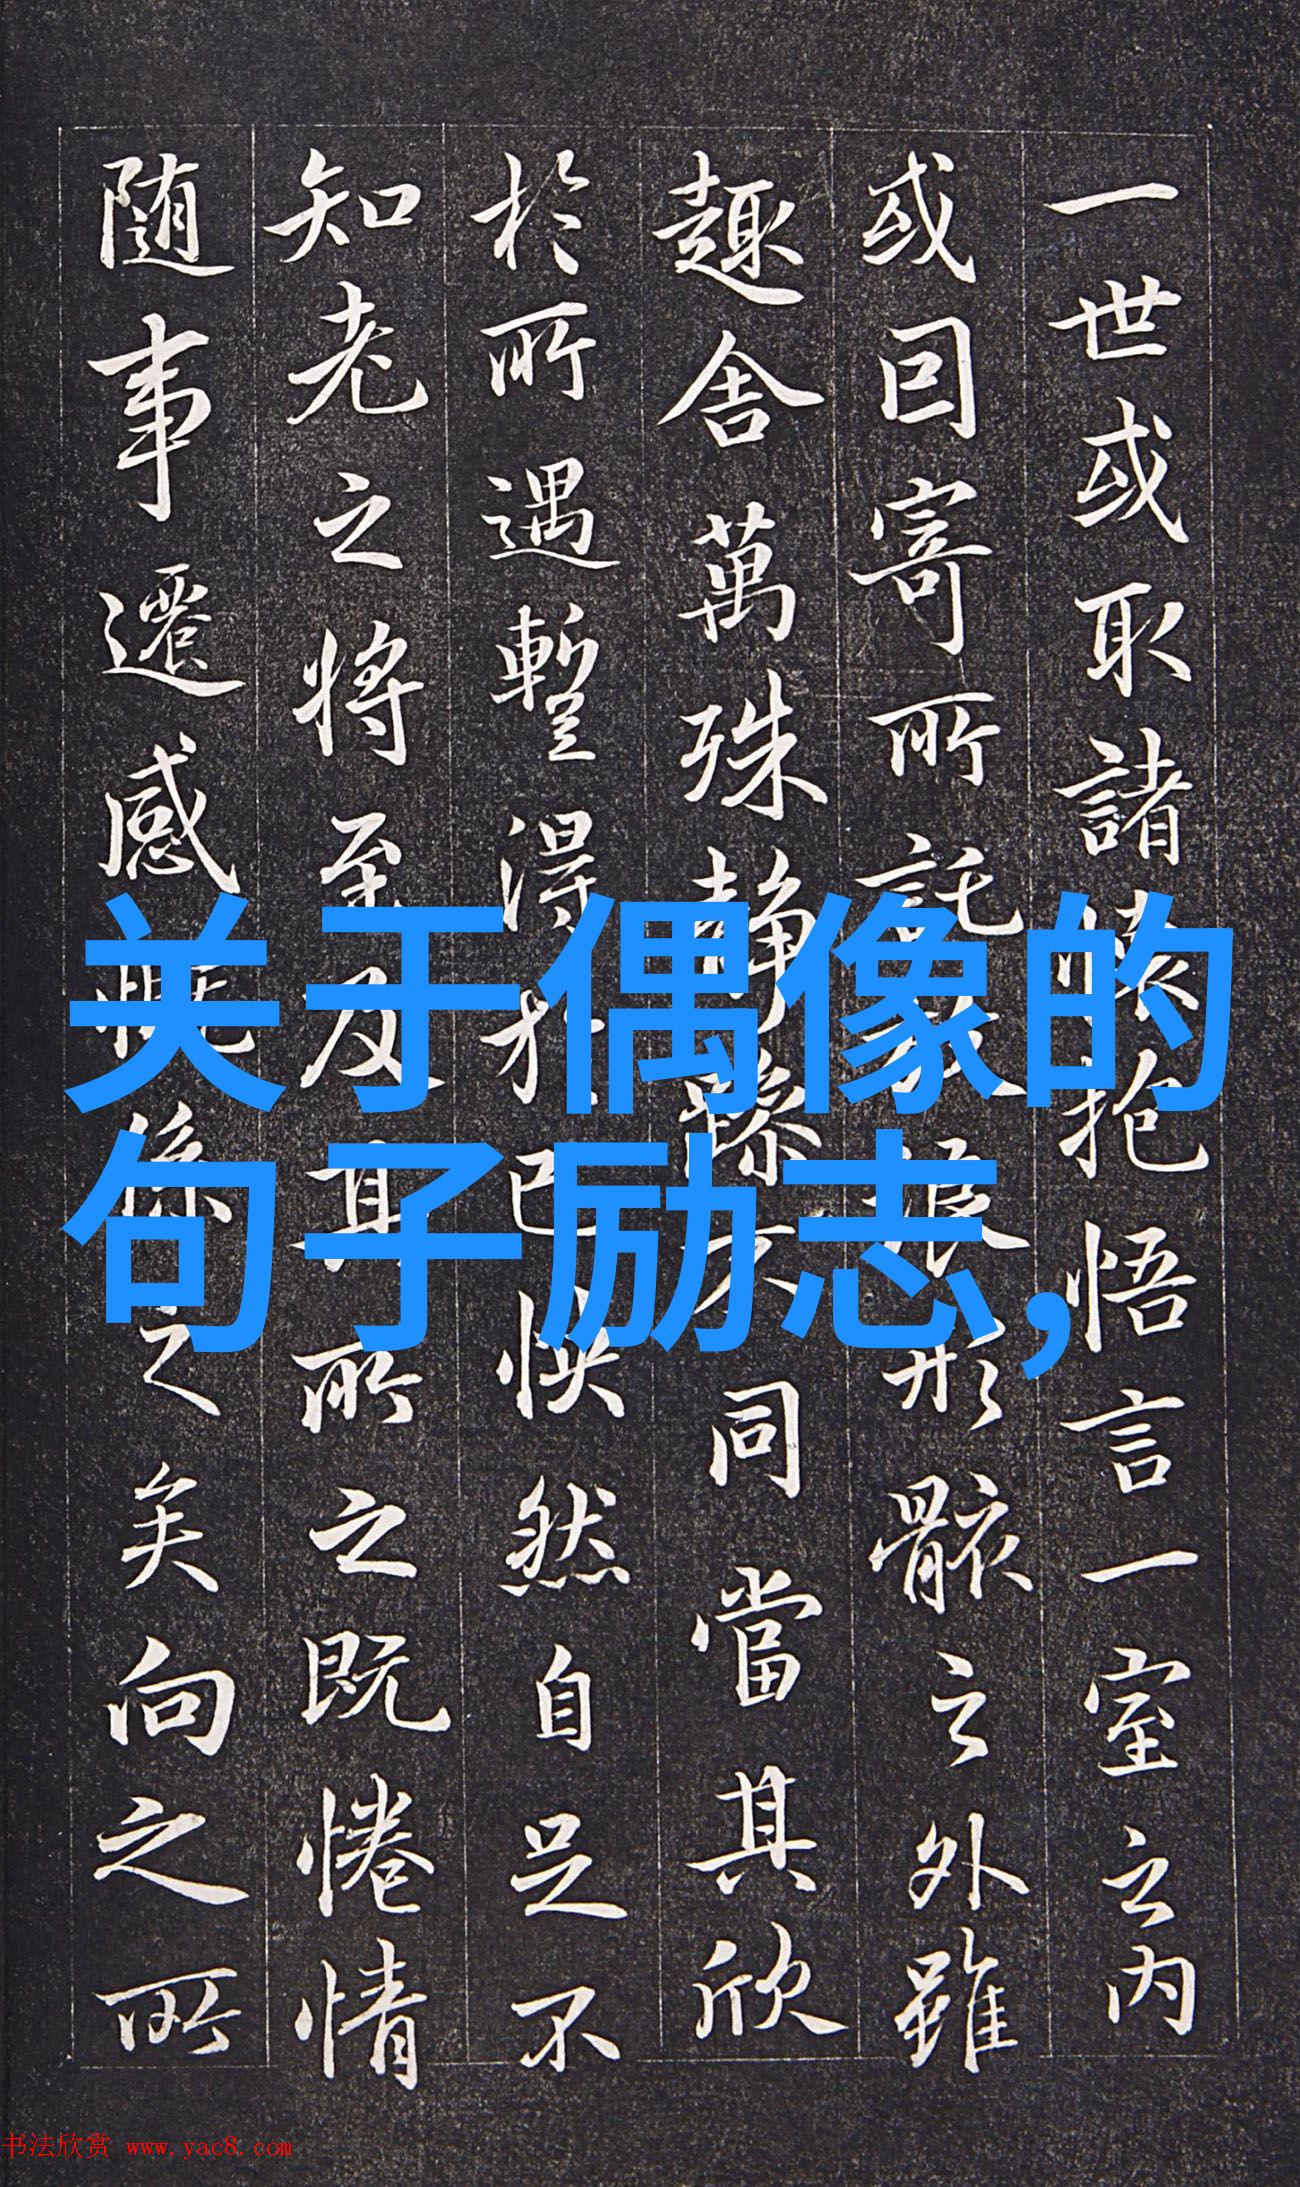 一世或取諸懷抱悟言一室之内
或因寄所託放浪形骸之外雖
趣舍萬殊静躁不同當其欣
於所遇暫得於己快然自足不
知老之將至及其所之既惓情
随事遷感慨係之矣向之所
关于偶像的
句子励志,
书法欣赏 www.yac8.com